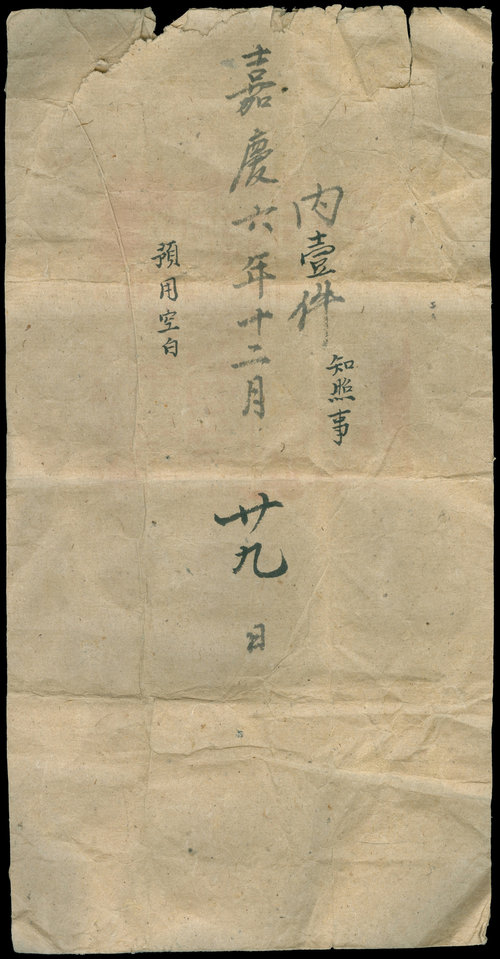 内壹件
知照事
嘉慶六年十二月廿九日
預用空白